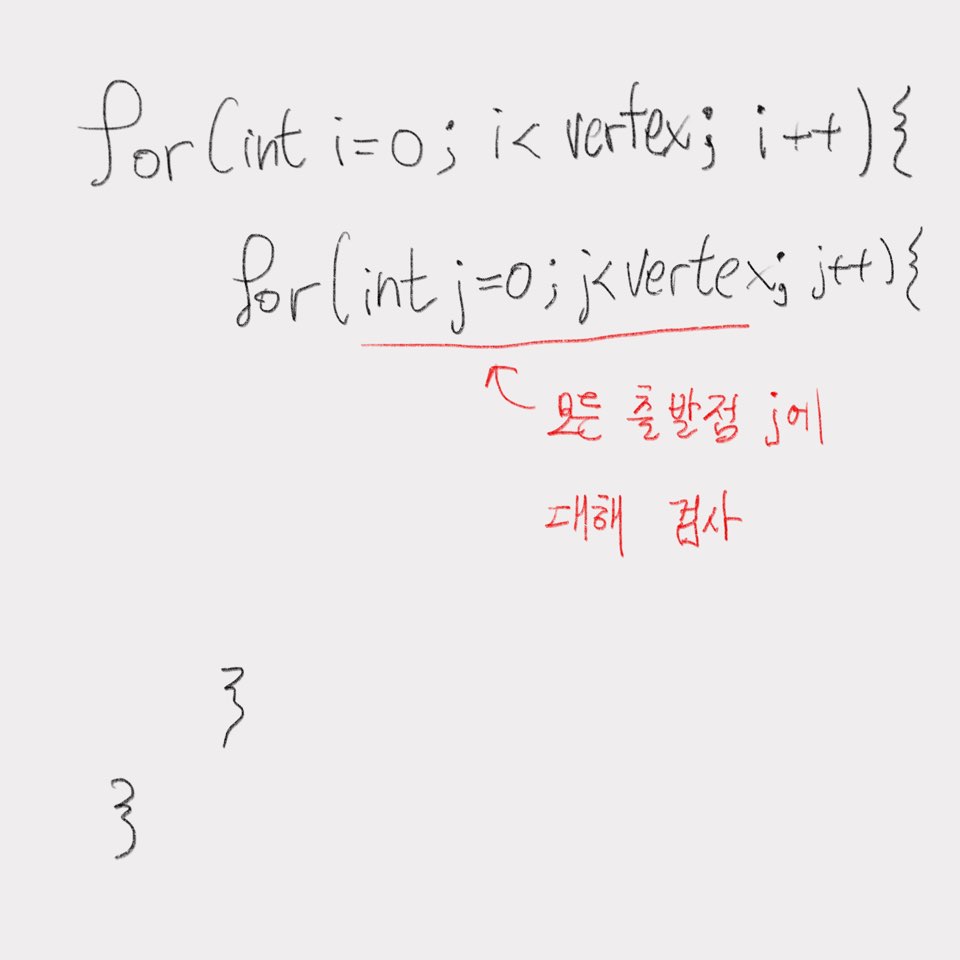 for(int i=0; i< vertex; i++){
for(int j=0; j<vertex; j++){
모든 출발점 j에
대해 검사
}
}